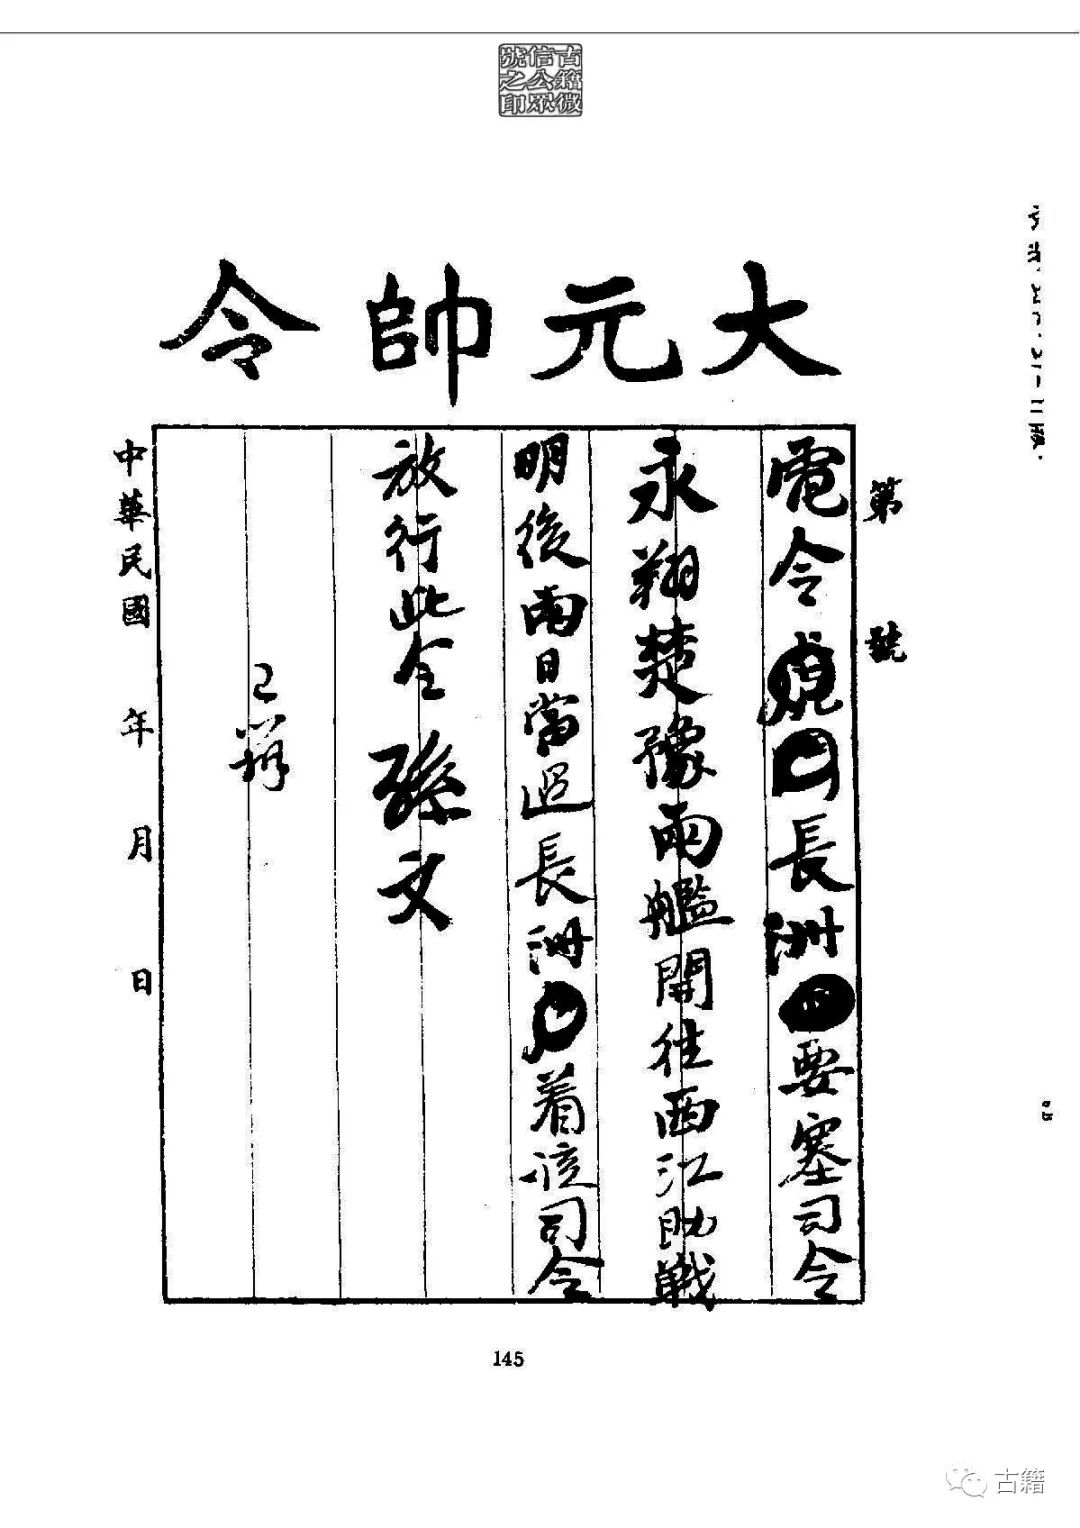 古籍微
信公眾
號之印
大元帥令
第 號
電令虎門長洲要塞司令
永翔楚豫兩艦開往西江助戰
明後兩日當過長洲着該司令
放行此令 孫文
已辦
中華民國 年 月 日
145
古籍